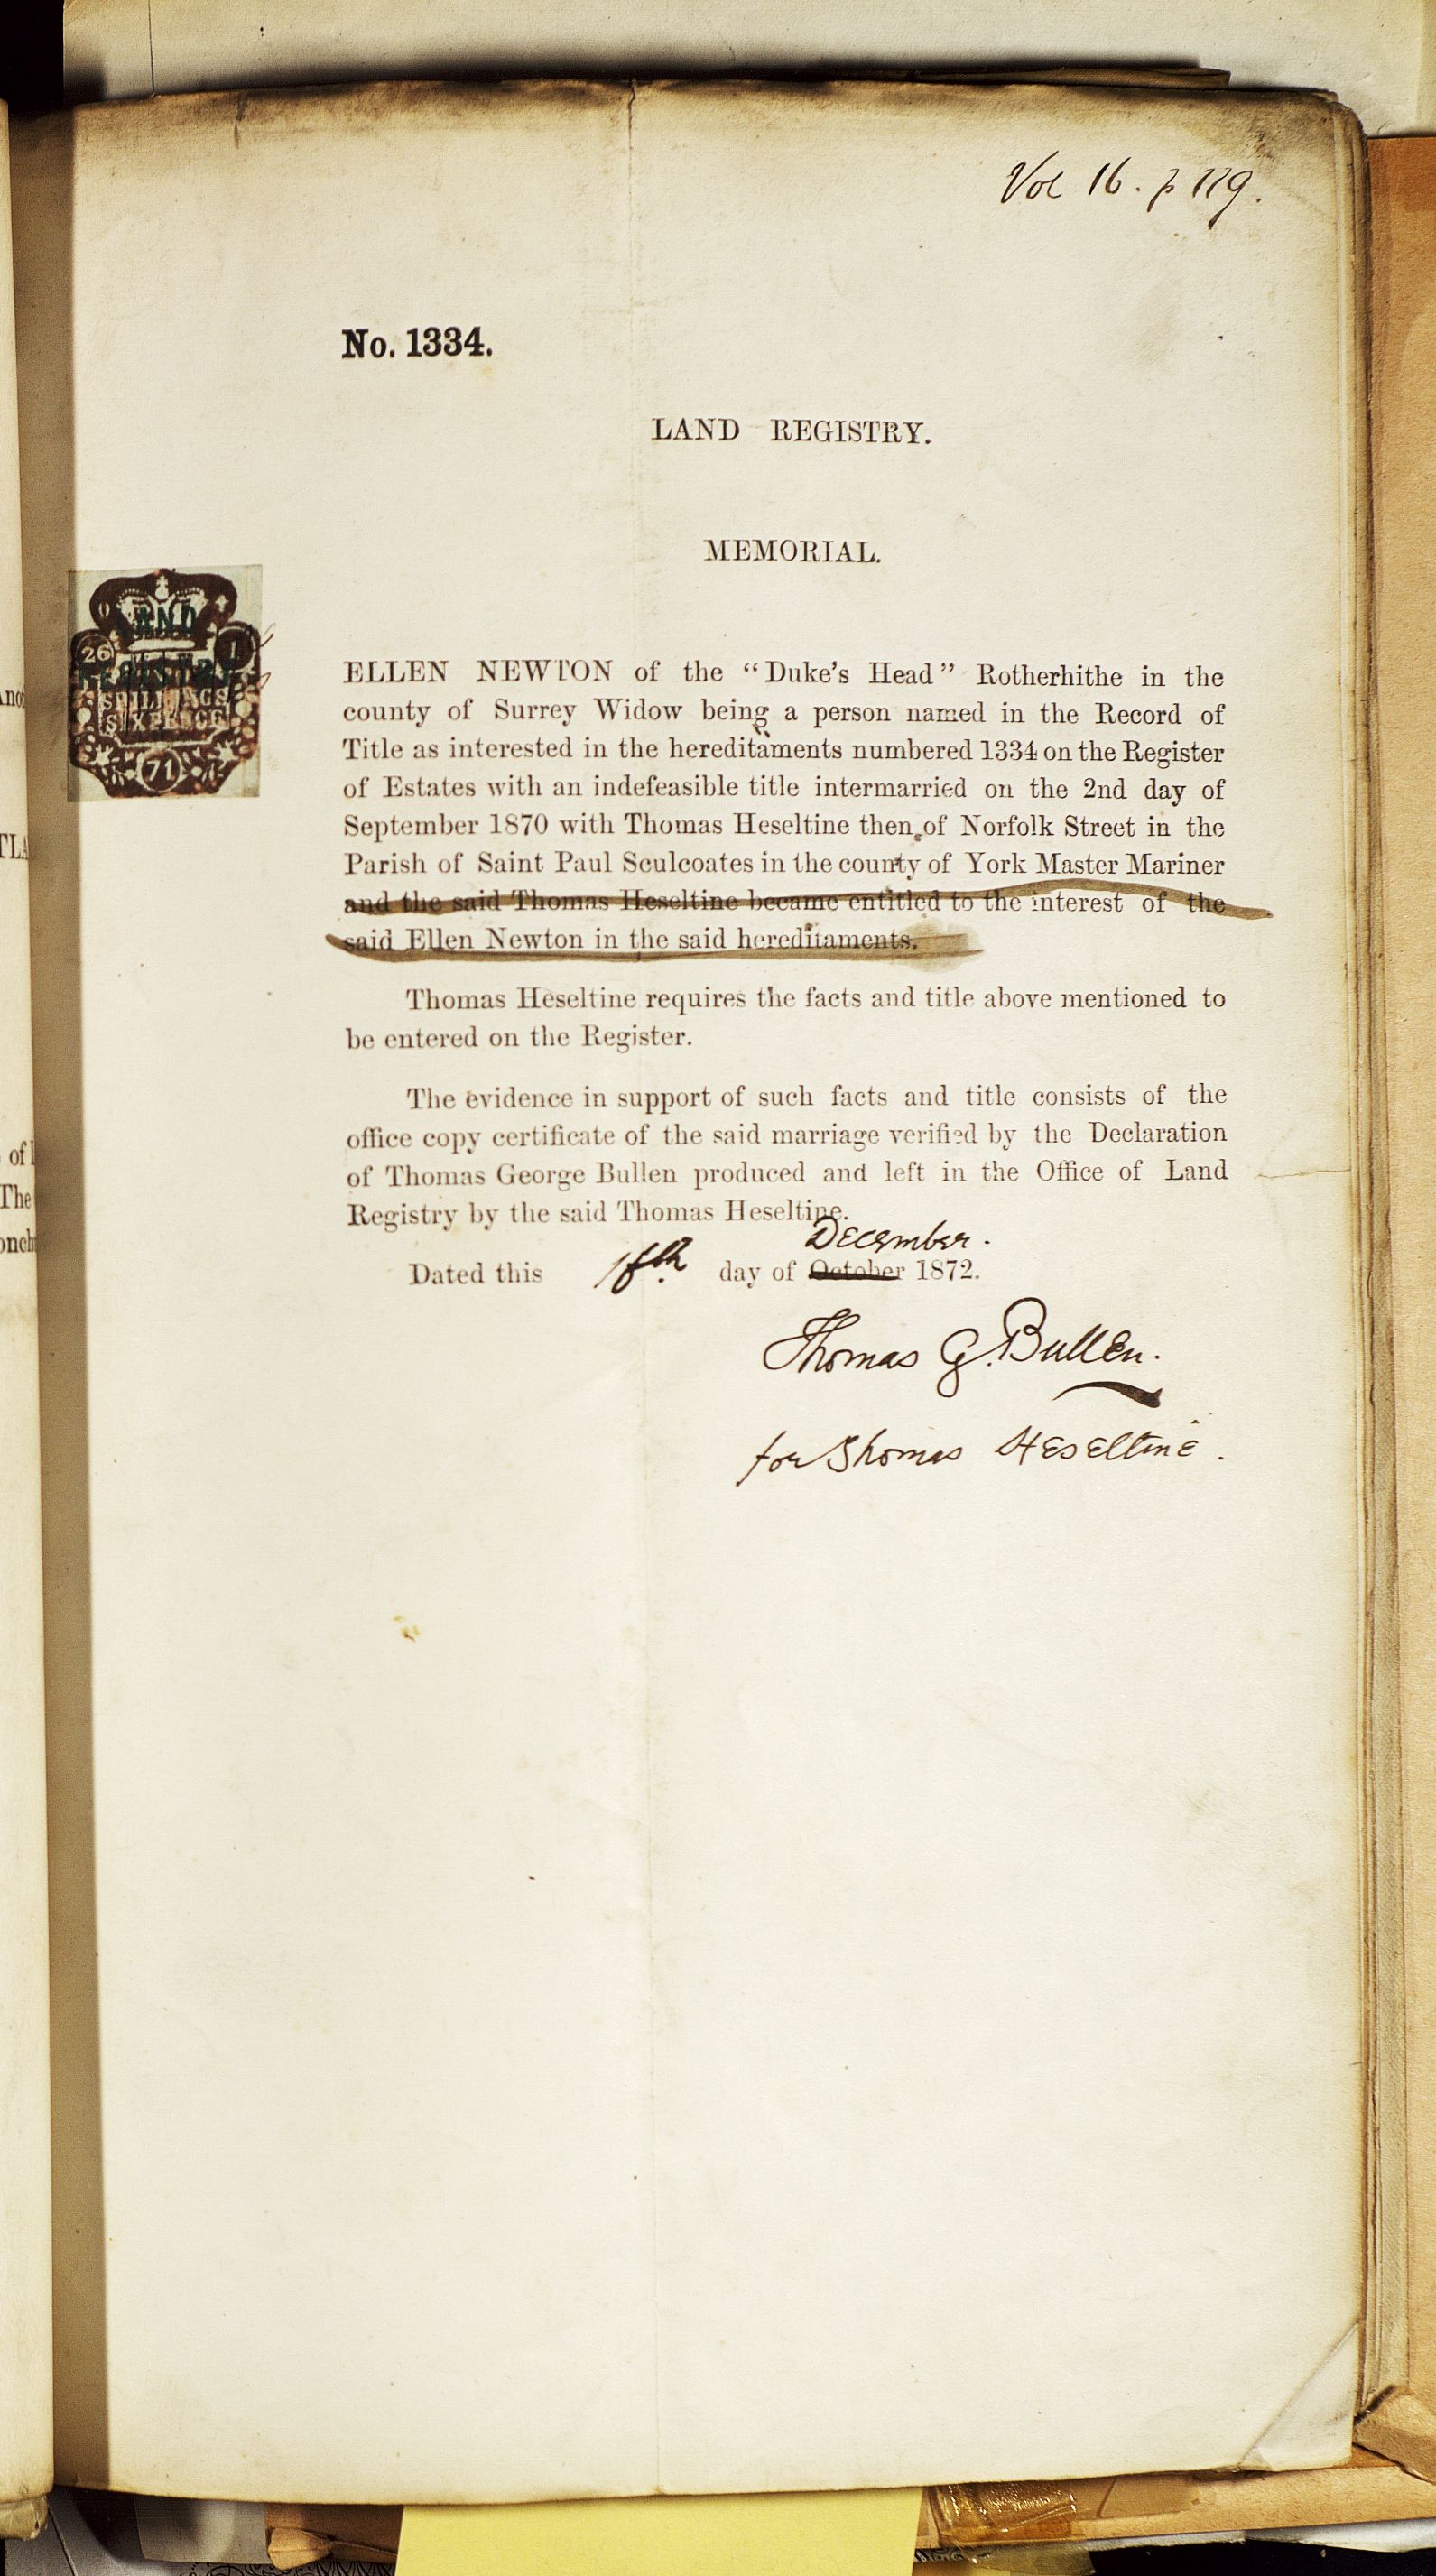 Vol 16. p 119.
No. 1334.
LAND REGISTRY.
MEMORIAL.
LAND
REGISTRY
26
1
SHILLINGS
SIXPENCE
71
ELLEN NEWTON of the “Duke’s Head” Rotherhithe in the
county of Surrey Widow being a person named in the Record of
Title as interested in the hereditaments numbered 1334 on the Register
of Estates with an indefeasible title intermarried on the 2nd day of
September 1870 with Thomas Heseltine then of Norfolk Street in the
Parish of Saint Paul Sculcoates in the county of York Master Mariner
and the said Thomas Heseltine became entitled to the interest of the
said Ellen Newton in the said hereditaments.
Thomas Heseltine requires the facts and title above mentioned to
be entered on the Register.
The evidence in support of such facts and title consists of the
office copy certificate of the said marriage verified by the Declaration
of Thomas George Bullen produced and left in the Office of Land
Registry by the said Thomas Heseltine.
December.
Dated this day of October 1872.
Thomas G. Bullen.
for Thomas Heseltine.
TLA
of
The